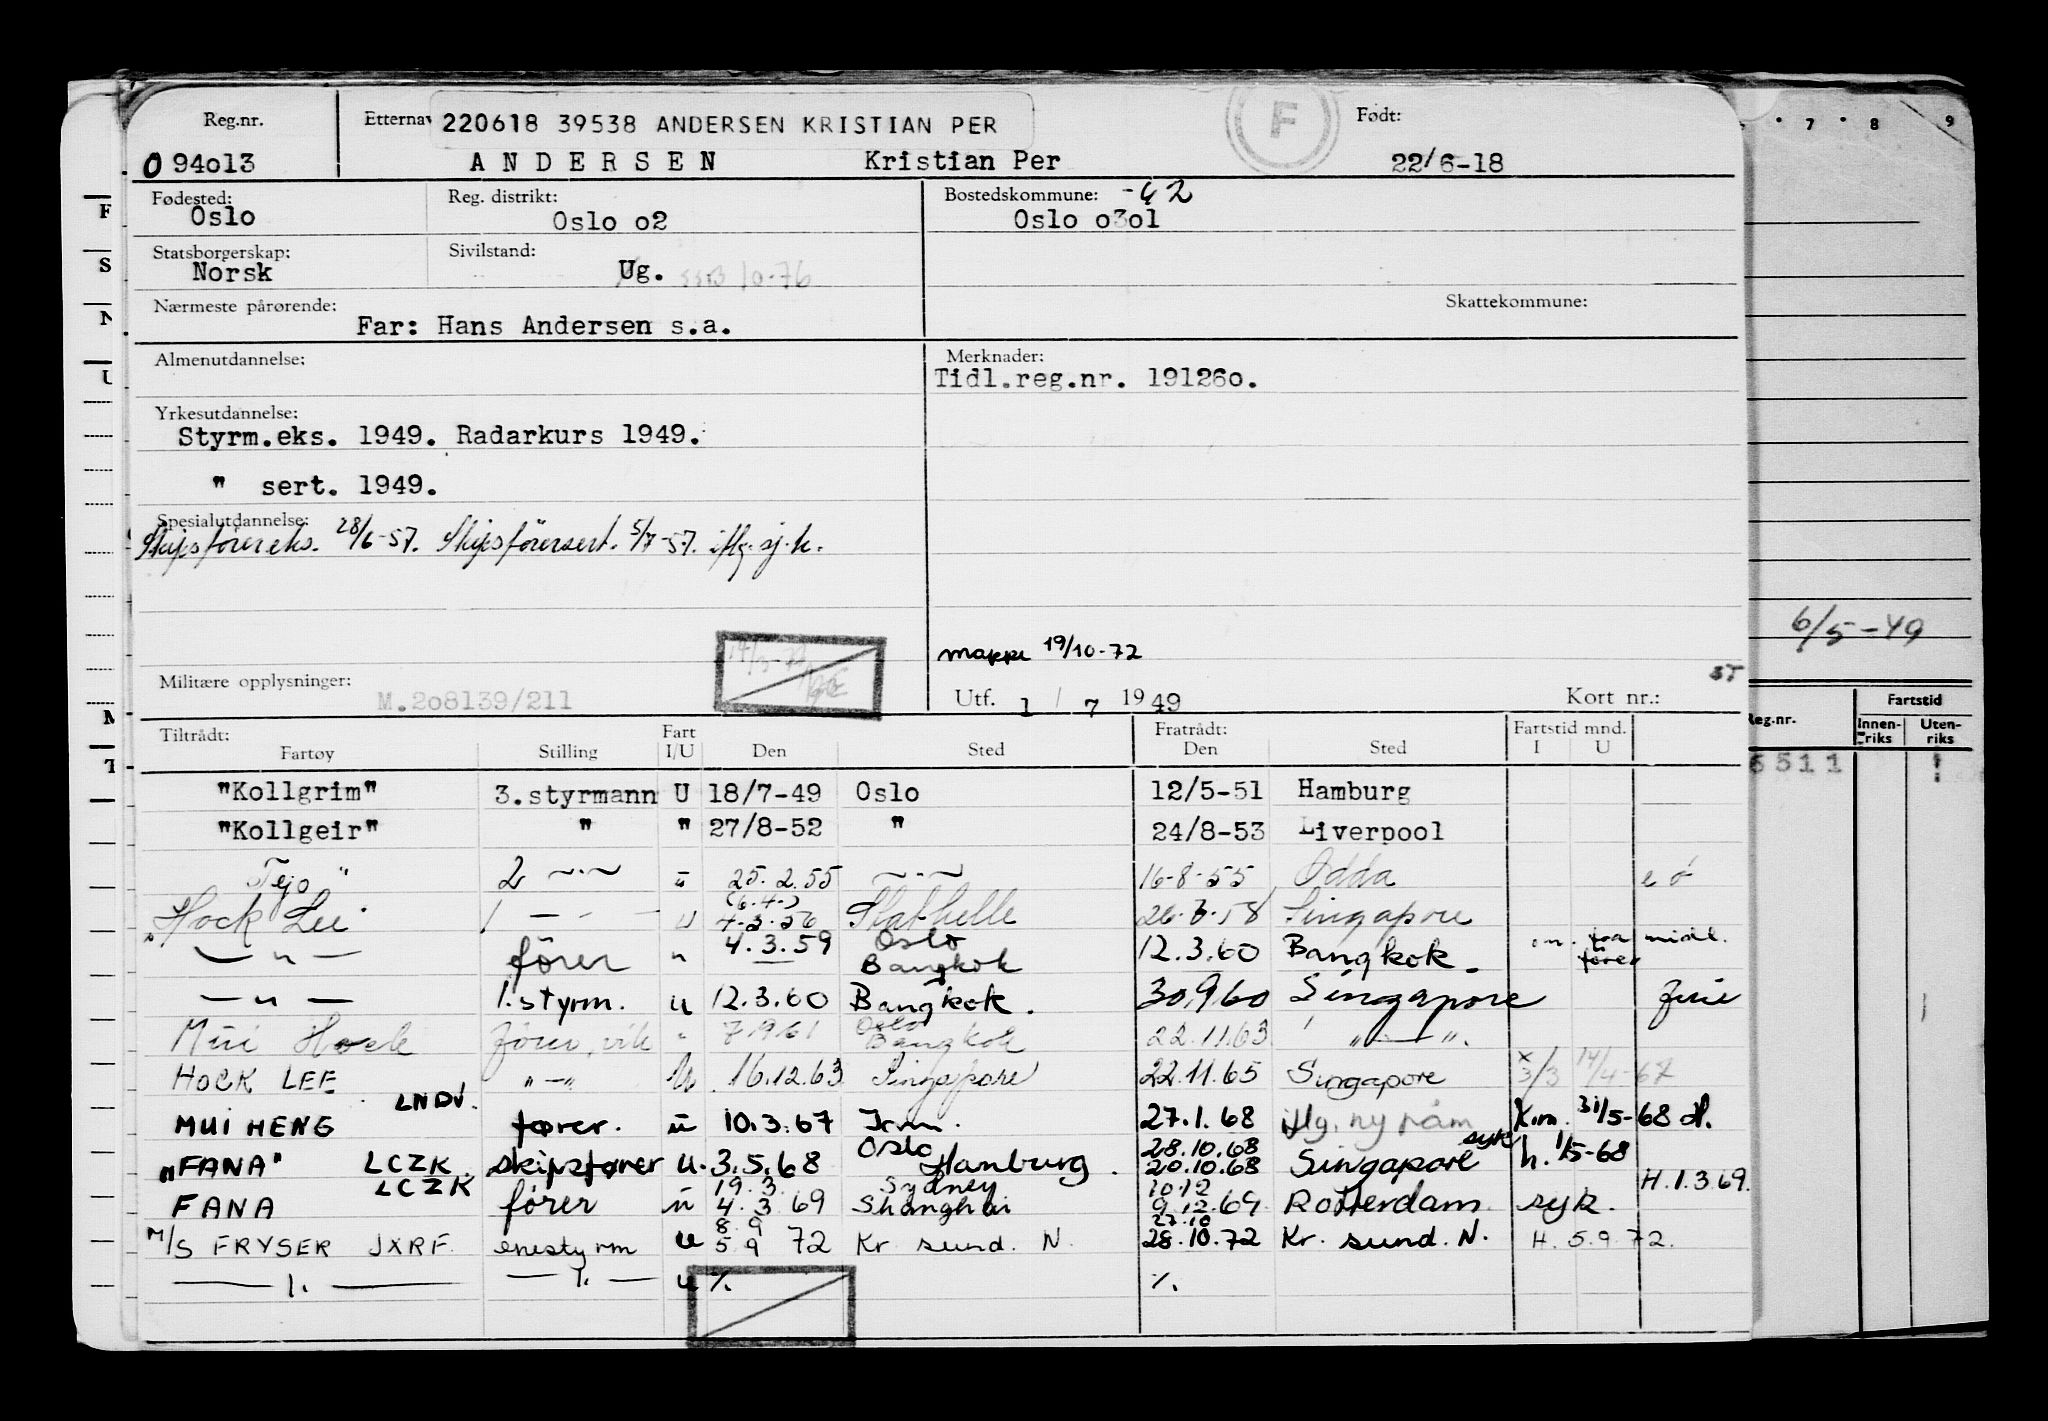 Reg.nr. Etternav 220618 39538 ANDERSEN KRISTIAN PER F Født:
0 94o13 ANDERSEN Kristian Per 22/6-18
Fødested: Reg. distrikt: Bostedskommune: -42
Oslo Oslo o2 Oslo o3o1
Statsborgerskap: Sivilstand:
Norsk Ug. 10-76
Nærmeste pårørende: Skattekommune:
Far: Hans Andersen s.a.
Almenutdannelse: Merknader:
Tidl.reg.nr. 19126o.
Yrkesutdannelse:
Styrm.eks. 1949. Radarkurs 1949.
" sert. 1949.
Spesialutdannelse:
Skipsförereks. 28/6-57. Skipsförersert. 5/7-57. iflg. sj.k.
6/5-49
mappe 19/10-72
Militære opplysninger: M.2o8139/211 Utf. 1 / 7 1949 Kort nr.: ST
Tiltrådt: Fart Fratrådt: Fartstid mnd. Reg.nr. Fartstid
Fartøy Stilling I/U Den Sted Den Sted I U Innenriks Utenriks
"Kollgrim" 3.styrmann U 18/7-49 Oslo 12/5-51 Hamburg 6511
"Kollgeir" " " 27/8-52 " 24/8-53 Liverpool
Tejo" 2 ~·~ " 25.2.55 ~·~ 16-8-55 Odda e ö
(6.4.)
"Hock Lee 1 — - — u 4-3-56 Stathelle 26-3-58 Singapore
— " — förer " 4.3.59 Oslo Bangkok 12.3.60 Bangkok.
— u — 1.styrm. u 12.3.60 Bangkok. 30.9.60 Singapore
Mui Hock förer, vik " 7.9.61 Oslo Bangkok 22.11.63 "—".
HOCK LEE "—" U 16.12.63 Singapore 22.11.65 Singapore x 3/3 14/4-67
MUI HENG LNDV. fører. u 10.3.67 27.1.68 iflg. ny 31/5-68
"FANA" LCZK skipsfører u. 3.5.68 Oslo Hamburg. 28.10.68 20.10.68 Singapore syk h. 1/5-68
FANA LCZK fører u 19.3. 4.3.69 Sydney Shanghai 10.12 9.12.69 Rotterdam syk. H.1.3.69.
M/S FRYSER JXRF. enestyrm u 8.9 5.9 72 Kr. sund. N. 27.10 28.10.72 Kr. sund. N. H. 5.9.72.
— 1. — — 1. — u %. %.